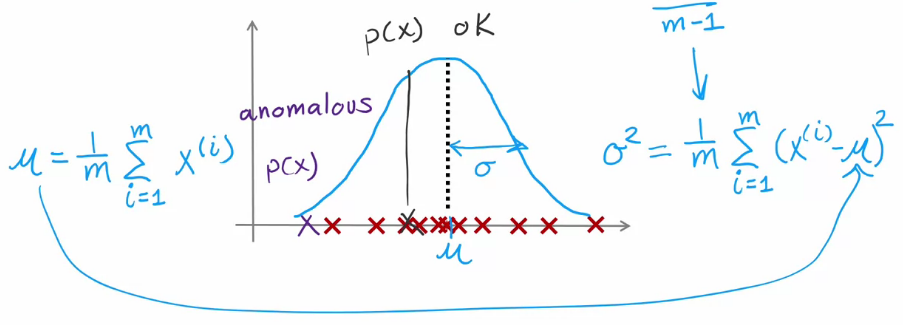 p(x) OK
m-1
anomalous
p(x)
μ = 1/m ∑ i=1 m x^(i)
σ
σ² = 1/m ∑ i=1 m (x^(i) - μ)²
μ